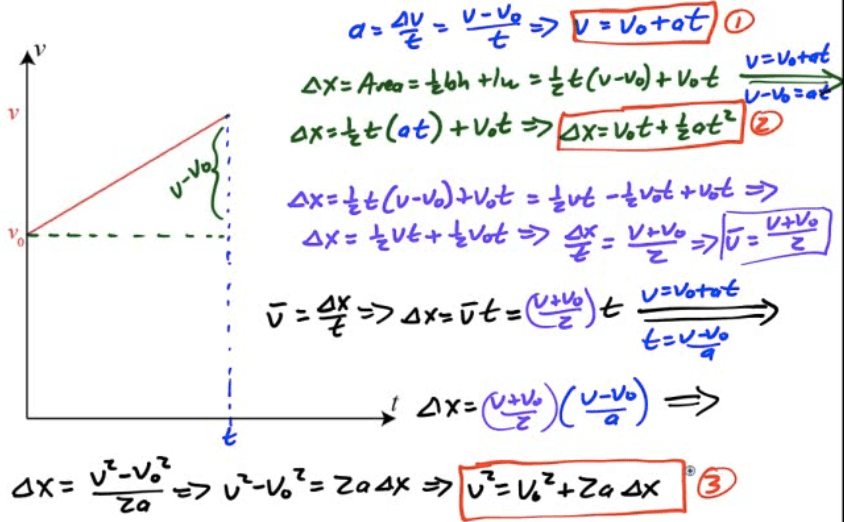 a = Δv/t = v-v₀/t ⇒ v = v₀ + at ①
v
Δx = Area = ½bh + lw = ½t(v-v₀) + v₀t
v = v₀ + at
v-v₀ = at
v
Δx = ½t(at) + v₀t ⇒ Δx = v₀t + ½at² ②
v-v₀
Δx = ½t(v-v₀) + v₀t = ½vt - ½v₀t + v₀t ⇒
v₀
Δx = ½vt + ½v₀t ⇒ Δx/t = v+v₀/2 ⇒ v̄ = v+v₀/2
v̄ = Δx/t ⇒ Δx = v̄t = (v+v₀/2)t
v = v₀ + at
t = v-v₀/a
t
Δx = (v+v₀/2)(v-v₀/a) ⇒
t
Δx = v²-v₀²/2a ⇒ v²-v₀² = 2aΔx ⇒ v² = v₀² + 2aΔx ③